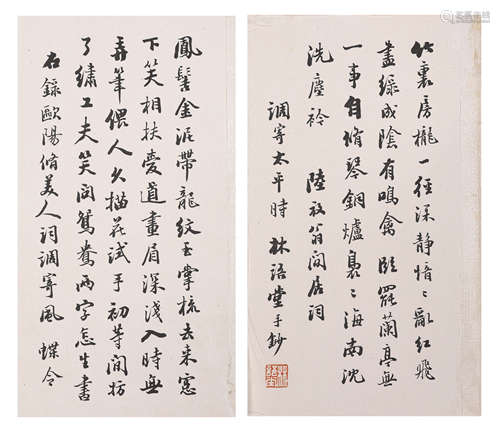 竹裏房櫳一徑深静愔〻亂紅飛
盡綠成陰有鳴禽臨罷蘭亭無
一事自脩琴銅爐裊〻海南沈
洗塵襟 陸放翁閒居詞
調寄太平時 林語堂手鈔
鳳髻金泥帶龍紋玉掌梳去來窗
下笑相扶愛道畫眉深淺入時無
弄筆偎人久描花試手初等閒妨
了繡工夫笑問鴛鴦兩字怎生書
右錄歐陽脩美人詞調寄風蝶令